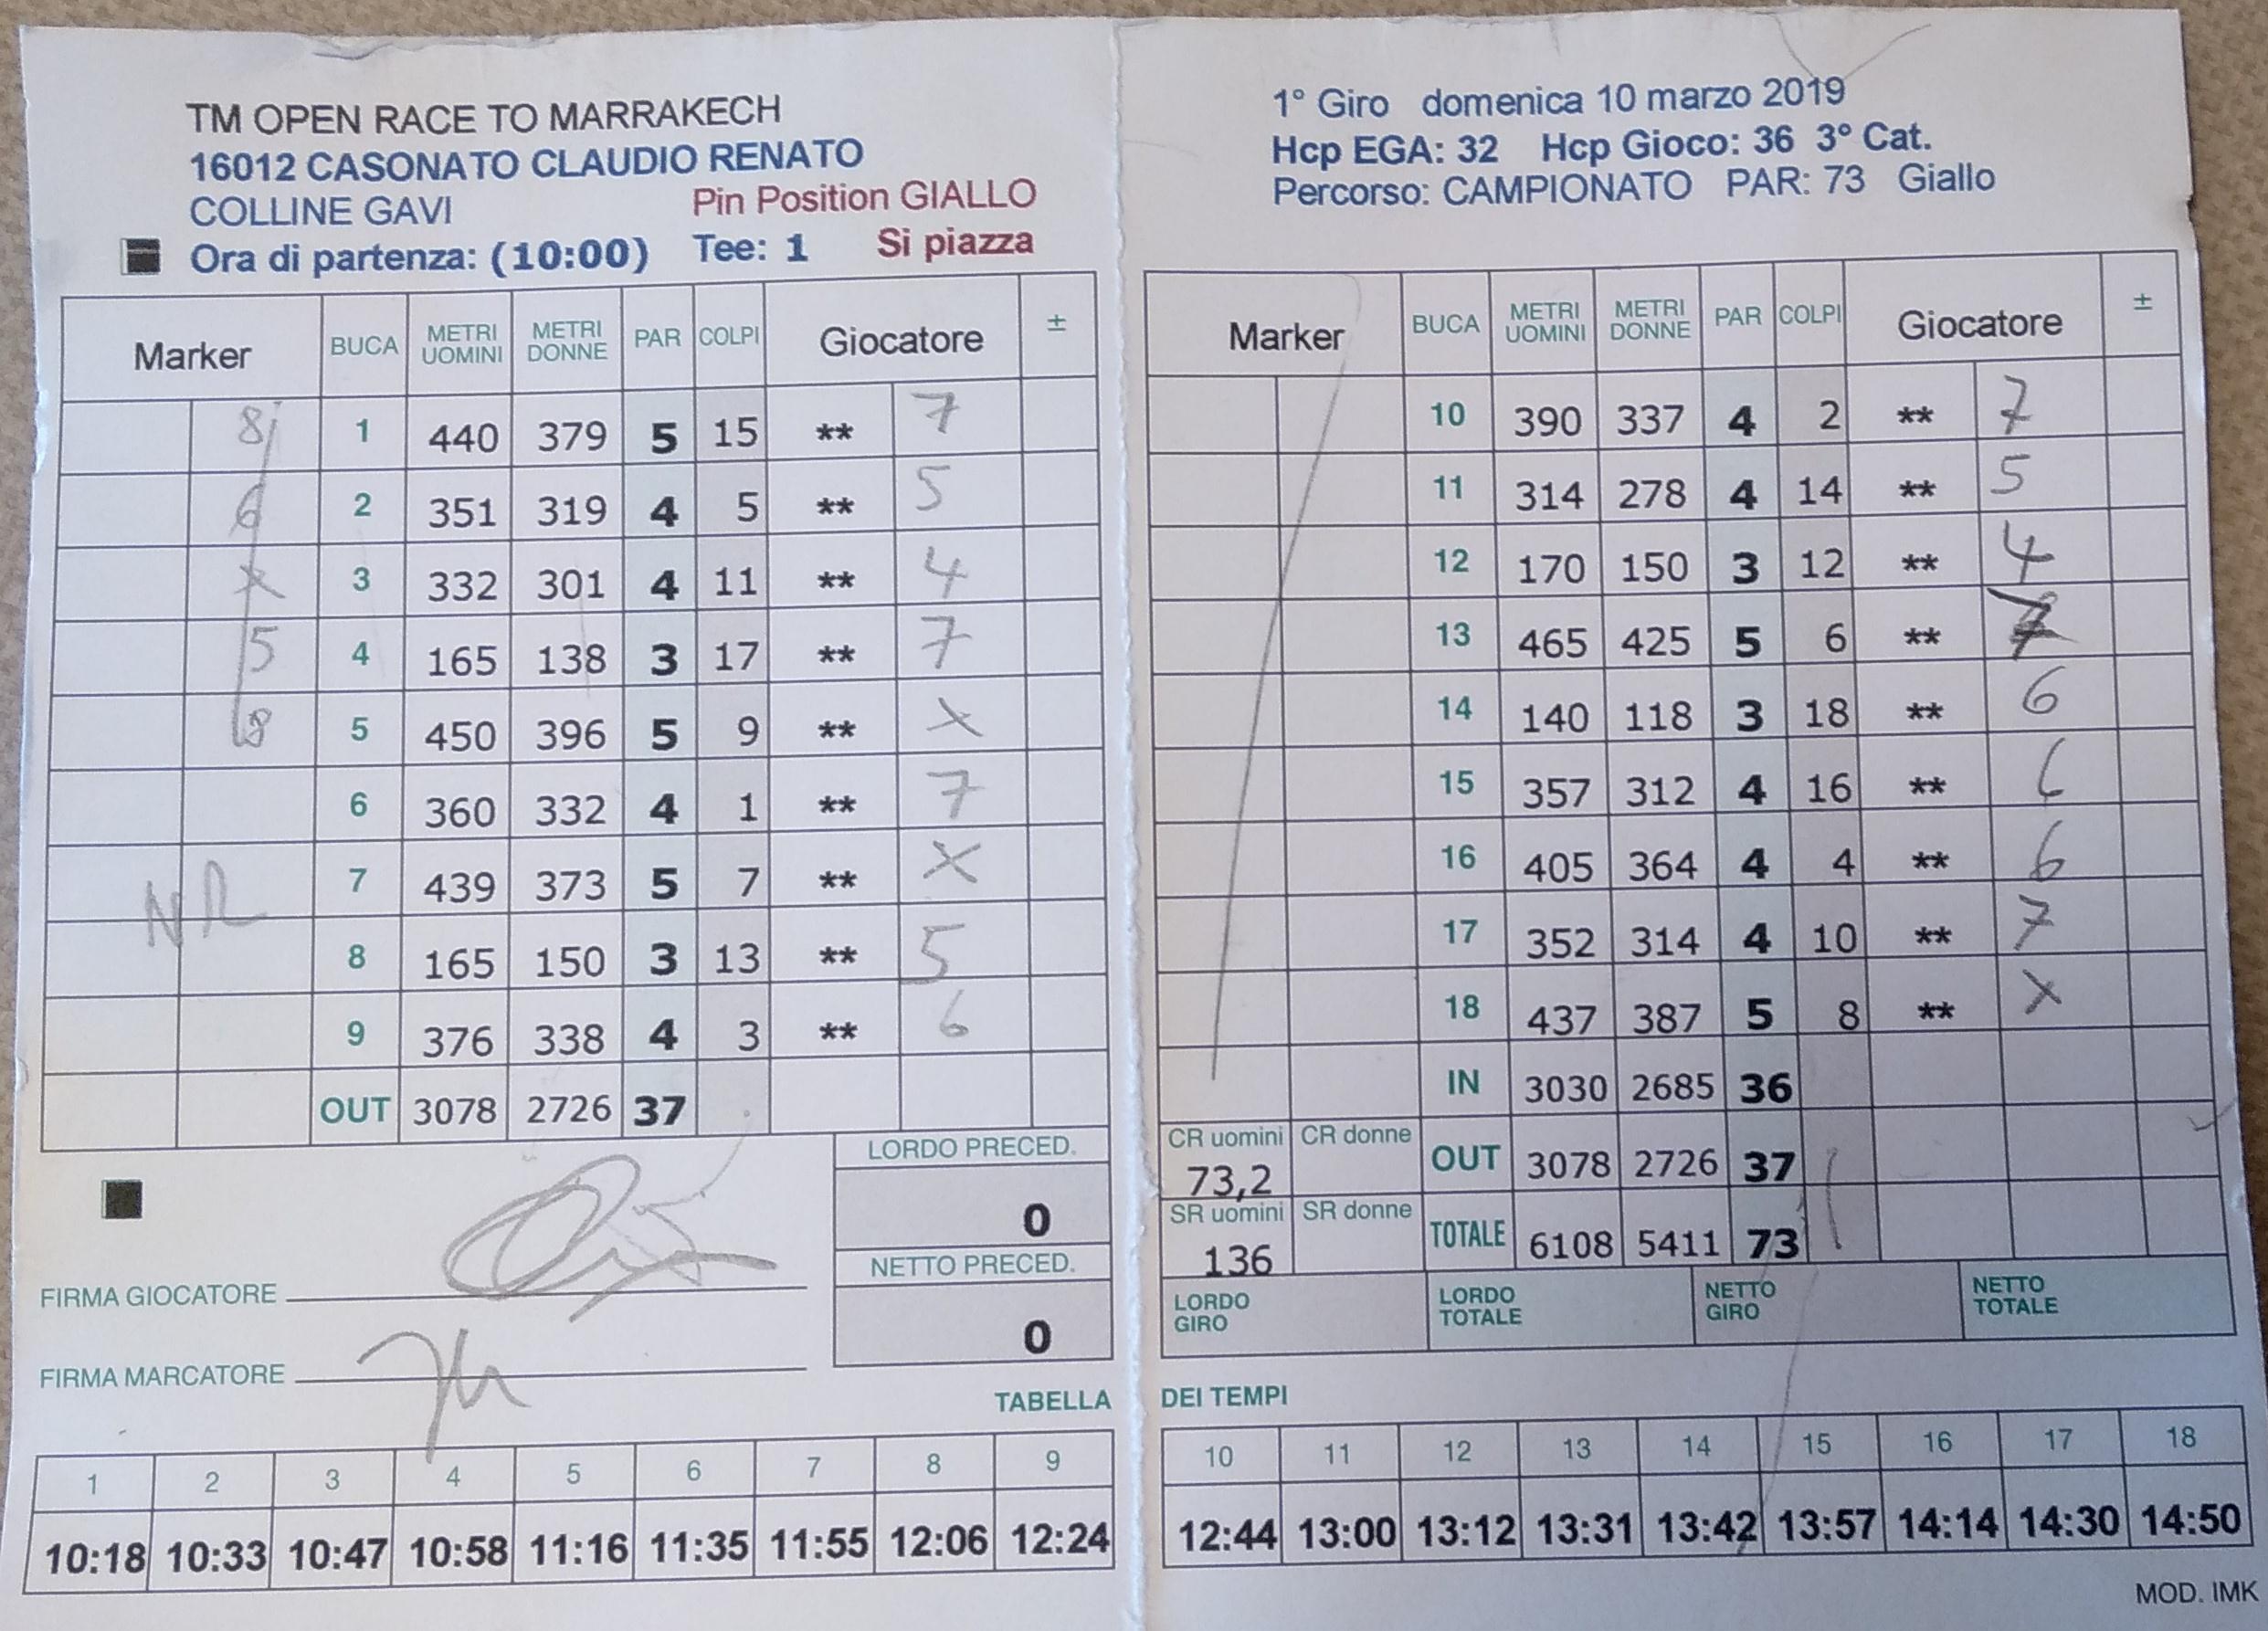 TM OPEN RACE TO MARRAKECH
16012 CASONATO CLAUDIO RENATO
COLLINE GAVI Pin Position GIALLO
Ora di partenza: (10:00) Tee: 1 Si piazza
Marker BUCA METRI UOMINI METRI DONNE PAR COLPI Giocatore ±
8 1 440 379 5 15 ** 7
6 2 351 319 4 5 ** 5
x 3 332 301 4 11 ** 4
5 4 165 138 3 17 ** 7
8 5 450 396 5 9 ** x
6 360 332 4 1 ** 7
NR 7 439 373 5 7 ** X
8 165 150 3 13 ** 5
9 376 338 4 3 ** 6
OUT 3078 2726 37
LORDO PRECED.
0
NETTO PRECED.
0
FIRMA GIOCATORE
FIRMA MARCATORE
1° Giro domenica 10 marzo 2019
Hcp EGA: 32 Hcp Gioco: 36 3° Cat.
Percorso: CAMPIONATO PAR: 73 Giallo
Marker BUCA METRI UOMINI METRI DONNE PAR COLPI Giocatore ±
10 390 337 4 2 ** 7
11 314 278 4 14 ** 5
12 170 150 3 12 ** 4
13 465 425 5 6 ** 7
14 140 118 3 18 ** 6
15 357 312 4 16 ** 6
16 405 364 4 4 ** 6
17 352 314 4 10 ** 7
18 437 387 5 8 ** x
IN 3030 2685 36
CR uomini CR donne OUT 3078 2726 37
73,2
SR uomini SR donne TOTALE 6108 5411 73
136
LORDO GIRO LORDO TOTALE NETTO GIRO NETTO TOTALE
TABELLA DEI TEMPI
1 2 3 4 5 6 7 8 9 10 11 12 13 14 15 16 17 18
10:18 10:33 10:47 10:58 11:16 11:35 11:55 12:06 12:24 12:44 13:00 13:12 13:31 13:42 13:57 14:14 14:30 14:50
MOD. IMK